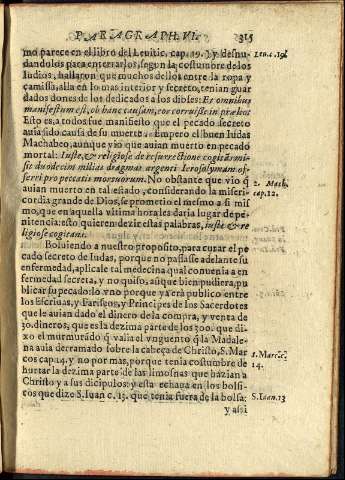 PARAGRAPH. VI. 315
mo parece en el libro del Leuitic. cap. 19.) y desnu- Leu. c. 19.
dandolos para enterrarlos, segun la costumbre de los
Iudios, hallaron que muchos dellos entre la ropa y
camissa, alla en lo mas interior y secreto, tenian guar
dados dones de los dedicados a los dioses: Et omnibus
manifestum est, ob hanc causam, eos corruisse in prælio:
Esto es, a todos fue manifiesto que el pecado secreto
auia sido causa de su muerte. Empero el buen Iudas
Machabeo, aunque vio que auian muerto en pecado
mortal: Iuste, & religiose de resurrectione cogitãs mi-
sit duodecim millias dragmas argenti Ierosolymam of-
ferri pro peccatis mortuorum. No obstante que vio q̃
auian muerto en tal estado, considerando la miseri- 2. Mach.
cordia grande de Dios, se prometio el mesmo a si mis cap. 12.
mo, que en aquella vltima hora les daria lugar de pe-
nitencia: esto quieren dezir estas palabras, iuste & re
ligiose cogitans.
Boluiendo a nuestro proposito, para curar el pe
cado secreto de Iudas, porque no passasse adelante su
enfermedad, aplicale tal medecina qual conuenia a en
fermedad secreta, y no quiso, aũque bien pudiera, pu
blicar su pecado: lo vno porque ya erà publico entre
los Escriuas, y Fariseos, y Principes de los Sacerdotes
que le auian dado el dinero de la compra, y venta de
30. dineros, que es la dezima parte de los 300. que di-
xo el murmurador q̃ valia el vnguento q̃ la Madale-
na auia derramado sobre la cabeça de Christo, S. Mar 1. Marc. c.
cos cap. 14. y no por mas, porque tenia costumbre de 14.
hurtar la dezima parte de las limosnas que hazian a
Christo y a sus dicipulos: y esta echaua en los bolsi-
cos que dize S. Iuan c. 13. que tenia fuera de la bolsa: S. Iuan. 13
y assi